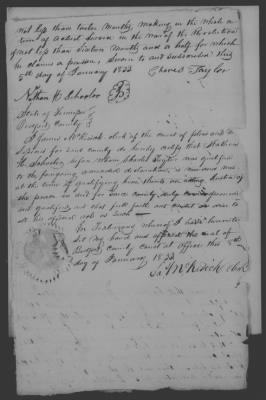 not less than twelve Months, making in the whole a
term of actual Service in the war of the Revolution
of not less than Sixteen Months and a half for which
he claims a pension, Sworn to and Subscribed this
5th day of January 1833
Chars Taylor
Nathan H Schooler
State of
Bedford County
I James McKisick clerk of the court of pleas and
Sessions for said county do hereby certify that Nathan
H. Schooler before whom Charles Taylor was qualified
to the foregoing amended declaration, is and was
at the time of qualifying him thereto an acting Justice of
the peace in and for said County duly Commissioned
and qualified and that full faith and credit is due to
all his official acts as such
In Testimony whereof I have hereunto
Set my hand and affixed the seal of
Bedford County court at office this
day of January 1833
Ja. McKisick clerk